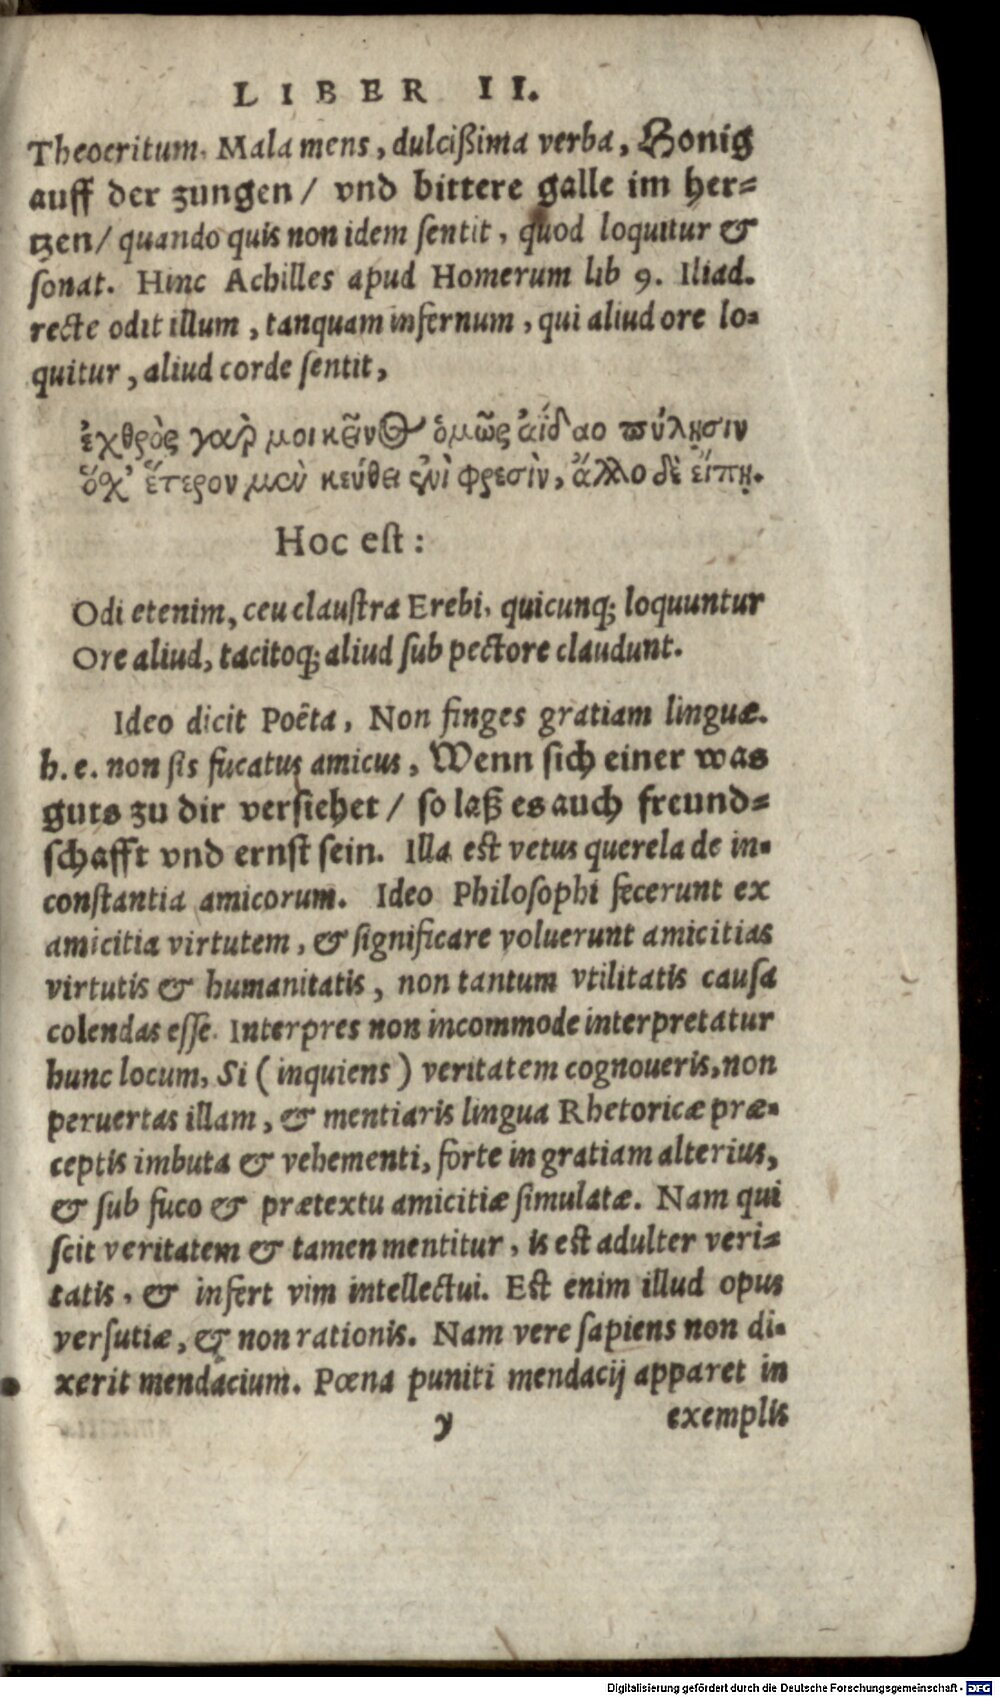 LIBER II.
Theocritum. Mala mens, dulcißima verba, Honig
auff der zungen / vnd bittere galle im her-
tzen / quando quis non idem ſentit, quod loquitur &
ſonat. Hinc Achilles apud Homerum lib 9. Iliad.
recte odit illum, tanquam infernum, qui aliud ore lo-
quitur, aliud corde ſentit,
ἐχθρὸς γαρ̀ μοι κεῖνος ὁμῶς ἀΐδαο πύλῃσιν
ὅχ' ἕτερον μὲν κεύθει ἐνὶ φρεσὶν, ἄλλο δὲ εἴπῃ.
Hoc eſt:
Odi etenim, ceu clauſtra Erebi, quicunq; loquuntur
Ore aliud, tacitoq; aliud ſub pectore claudunt.
Ideo dicit Poëta, Non finges gratiam linguæ.
h. e. non ſis fucatus amicus, Wenn ſich einer was
guts zu dir verſiehet / ſo laß es auch freund-
ſchafft vnd ernſt ſein. Illa eſt vetus querela de in-
conſtantia amicorum. Ideo Philoſophi fecerunt ex
amicitia virtutem, & ſignificare voluerunt amicitias
virtutis & humanitatis, non tantum vtilitatis cauſa
colendas eſſe. Interpres non incommode interpretatur
hunc locum, Si (inquiens) veritatem cognoueris, non
peruertas illam, & mentiaris lingua Rhetoricæ præ-
ceptis imbuta & vehementi, forte in gratiam alterius,
& ſub fuco & prætextu amicitiæ ſimulatæ. Nam qui
ſcit veritatem & tamen mentitur, is eſt adulter veri-
tatis, & infert vim intellectui. Eſt enim illud opus
verſutiæ, & non rationis. Nam vere ſapiens non di-
xerit mendacium. Pœna puniti mendacij apparet in
y exemplis
Digitalisierung gefördert durch die Deutsche Forschungsgemeinschaft - DFG